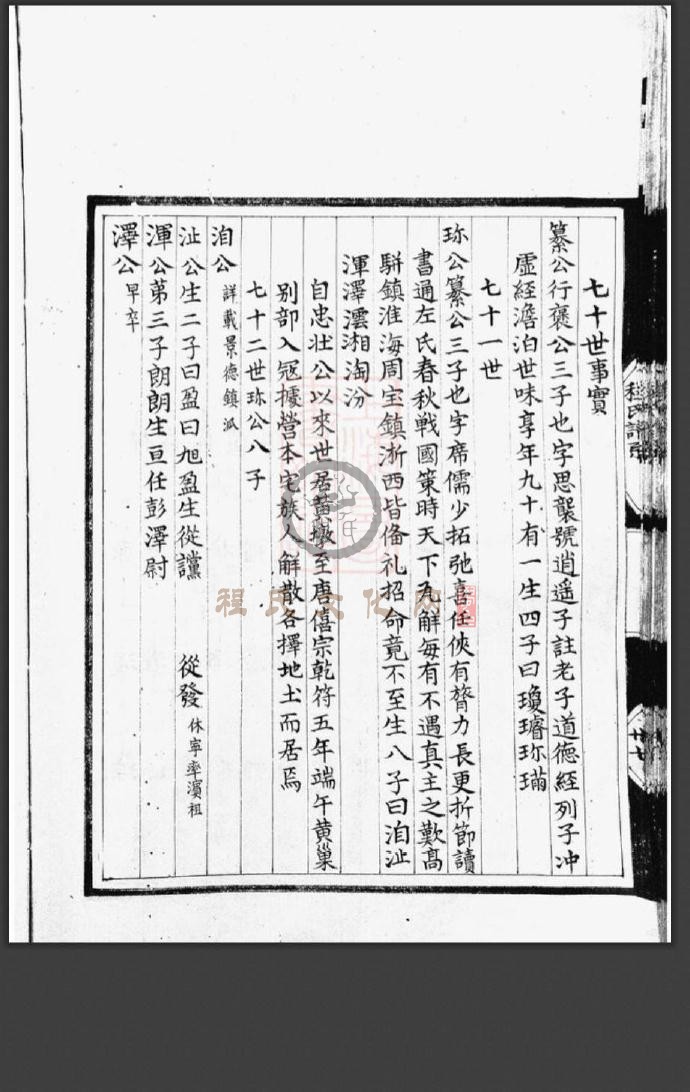 七十世事實
纂公行褒公三子也字思襲號逍遥子註老子道德經列子冲
虛經澹泊世味享年九十有一生四子曰瓊璿珎璊
七十一世
珎公纂公三子也字席儒少拓弛喜任俠有膂力長更折節讀
書通左氏春秋戰國策時天下瓦解每有不遇真主之歎高
駢鎮淮海周宝鎮浙西皆俻礼招命竟不至生八子曰洎沚
渾澤澐湘淘汾
自忠壮公以來世居黃墩至唐僖宗乾符五年端午黄巢
别部入冦據營本宅族人觧散各擇地土而居焉
七十二世珎公八子
洎公詳載景德鎮派
沚公生二子曰盈曰旭盈生從讜 從發休寧率濵祖
渾公第三子朗朗生亘任彭澤尉
澤公早卒
程氏譜
廿七
程氏文化网